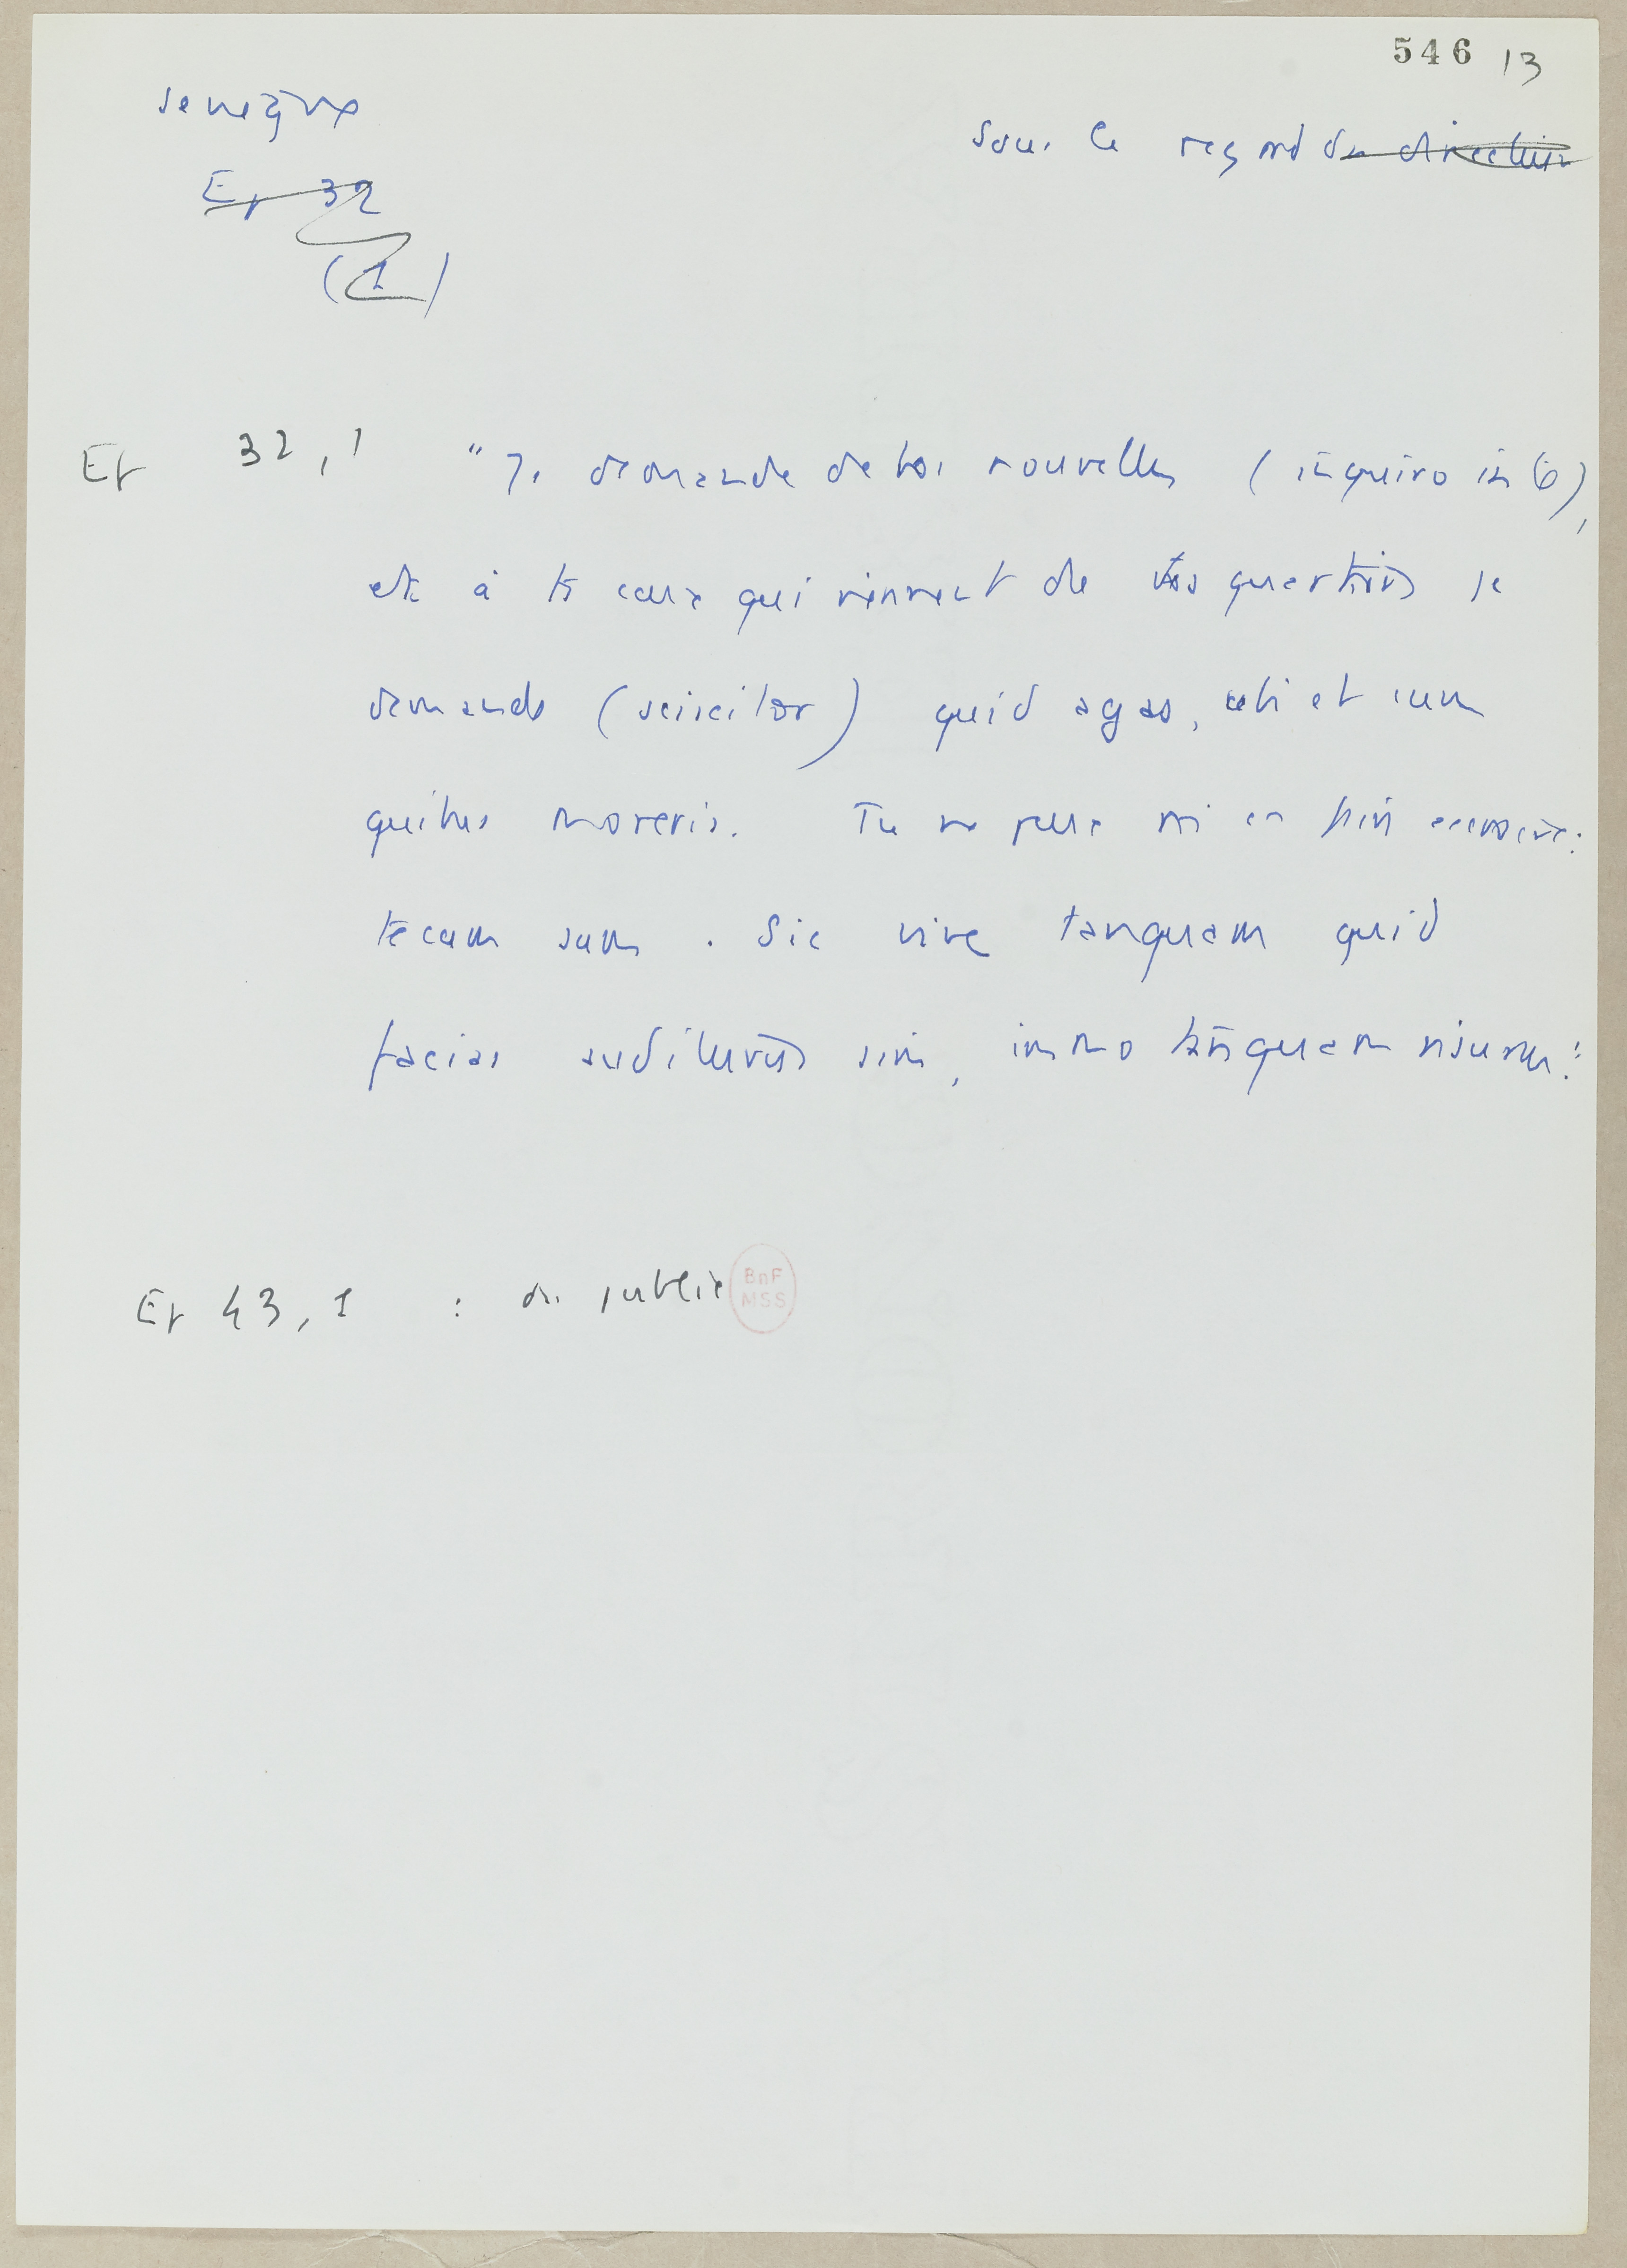 546 13
Senèque
Sous le regard du directeur
Ep 32
(1)
Ep 32,1 "Je demande de toi nouvelles (inquiro in te),
et à ts ceux qui viennent de tes quartiers je
demande (sciscitor) quid agas, ubi et cum
quibus moreris. Tu ne peux m'en
tecum sum. Sic vive tanquam quid
facias auditurus sim, immo tanquam visurus."
Ep 43,1 : du public
BnF
MSS